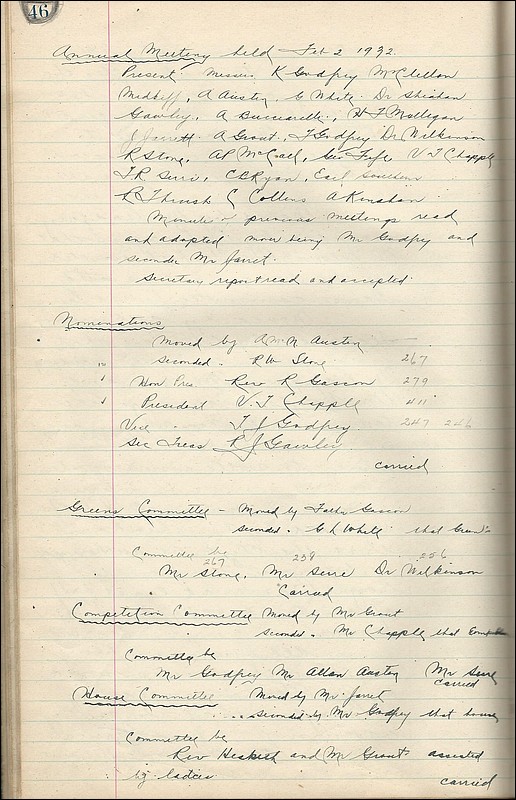 46
Annual Meeting held Feb 2 1932.
Present Messrs K Godfrey McClellan
Midkiff, A Austen, G White. Dr Sheahan
Gawley, A Bucciarelli, H F Mulligan
J Jarrett. A Grant, T Godfrey Dr Wilkinson
R Stone, Geo Fyfe, V T Chapple
J R Serri, C C Ryan, Earl
R Thrush C Collins A Kinahan
Minute of previous meetings read
and adopted mover being Mr Godfrey and
seconder Mr Jarret.
Secretary report read and accepted
Nominations
Moved by Austen
seconded. R W Stone 267
Hon Pres Rev R Gascon 279
President V T Chapple 411
Vice " T J Godfrey. 247 246
Sec Treas R J Gawley.
carried
Greens Committee - Moved by Father Gascon
seconded. G L White that Green's
Committee be
267 259 256
Mr Stone, Mr Serre Dr Wilkinson
Carried
Competition Committee Moved by Mr Grant
seconded. Mr Chapple that
Committee be
Mr Godfrey Mr Allan Austen Mr Serre
carried
House Committee Moved by Mr Jarret
seconded by Mr Godfrey that house
Committee be
Rev Heskett and Mr Grant assisted
by ladies
carried